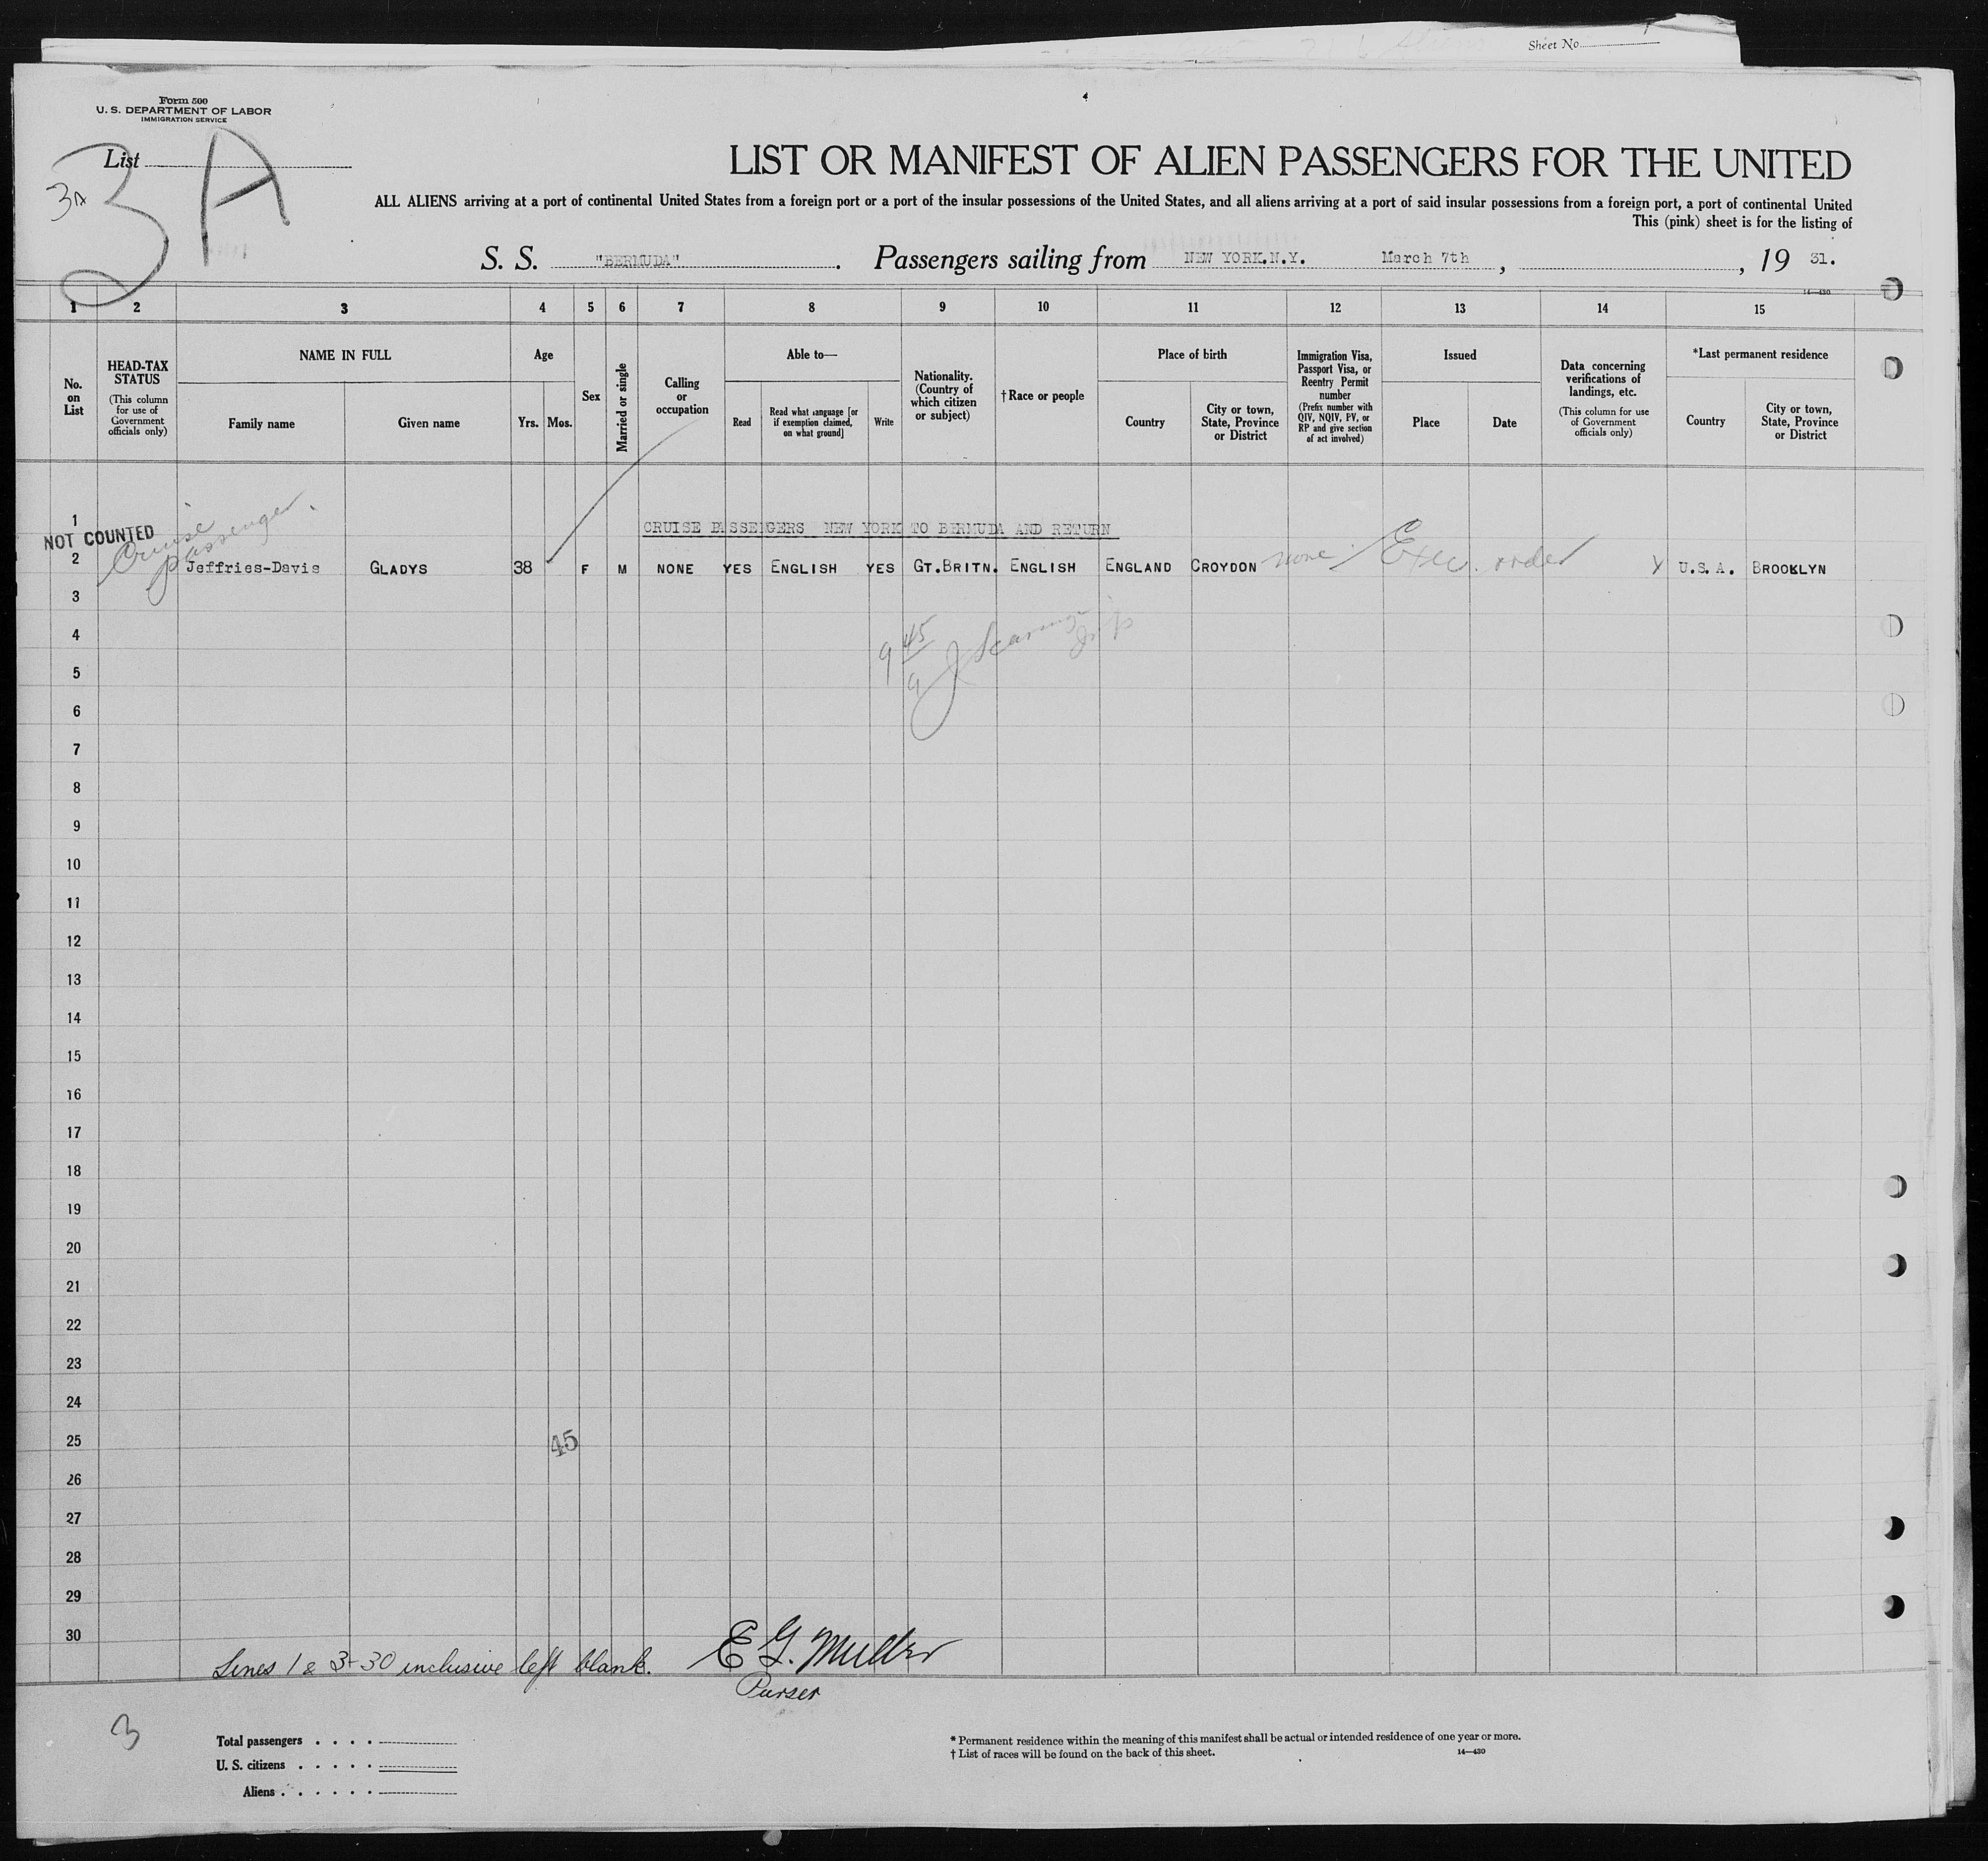 Sheet No.
Form 500
U. S. DEPARTMENT OF LABOR
IMMIGRATION SERVICE
List
3A
3 A
LIST OR MANIFEST OF ALIEN PASSENGERS FOR THE UNITED
ALL ALIENS arriving at a port of continental United States from a foreign port or a port of the insular possessions of the United States, and all aliens arriving at a port of said insular possessions from a foreign port, a port of continental United
This (pink) sheet is for the listing of
S. S. "BERMUDA". Passengers sailing from NEW YORK.N.Y. March 7th, , 19 31.
14—430
1 2 3 4 5 6 7 8 9 10 11 12 13 14 15
No. on List
HEAD-TAX STATUS
(This column for use of Government officials only)
NAME IN FULL
Family name
Given name
Age
Yrs. Mos.
Sex
Married or single
Calling or occupation
Able to—
Read
Read what language [or if exemption claimed, on what ground]
Write
Nationality. (Country of which citizen or subject)
†Race or people
Place of birth
Country
City or town, State, Province or District
Immigration Visa, Passport Visa, or Reentry Permit number
(Prefix number with QIV, NQIV, PV, or RP and give section of act involved)
Issued
Place
Date
Data concerning verifications of landings, etc.
(This column for use of Government officials only)
*Last permanent residence
Country
City or town, State, Province or District
1
CRUISE PASSENGERS NEW YORK TO BERMUDA AND RETURN
NOT COUNTED
Cruise passenger.
2 Jeffries-Davis GLADYS 38 F M NONE YES ENGLISH YES GT.BRITN. ENGLISH ENGLAND CROYDON none Exec. order U.S.A. BROOKLYN
3
4
9 45
5
6
7
8
9
10
11
12
13
14
15
16
17
18
19
20
21
22
23
24
25
45
26
27
28
29
30
Lines 1 & 3-30 inclusive left blank. E G. Muller
Purser
3
Total passengers
U. S. citizens
Aliens
* Permanent residence within the meaning of this manifest shall be actual or intended residence of one year or more.
† List of races will be found on the back of this sheet. 14—430